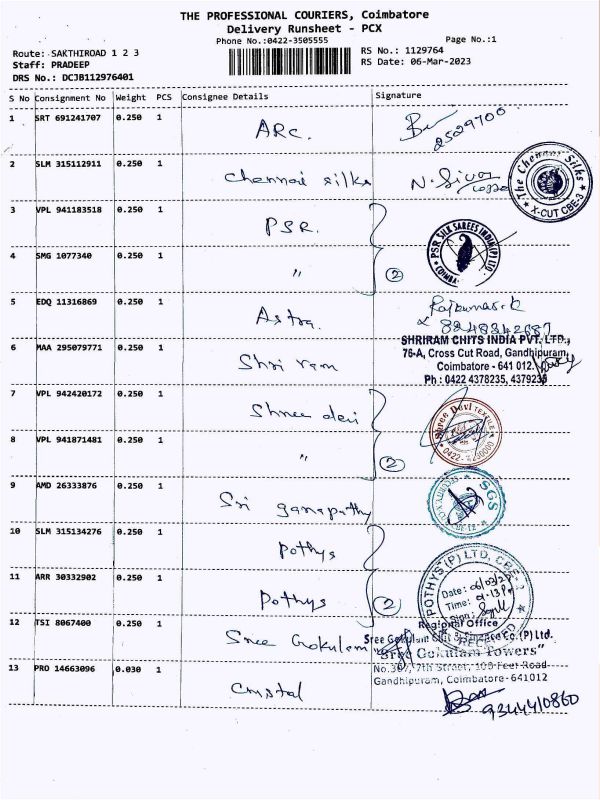 THE PROFESSIONAL COURIERS, Coimbatore
Delivery Runsheet - PCX
Phone No.:0422-3505555 Page No.:1
Route: SAKTHIROAD 1 2 3 RS No.: 1129764
Staff: PRADEEP RS Date: 06-Mar-2023
DRS No.: DCJB112976401
S No Consignment No Weight PCS Consignee Details Signature
1 SRT 691241707 0.250 1 ARC. 2529700
2 SLM 315112911 0.250 1 Chennai silks N. Siva
The Chennai Silks
★ X-CUT CBE-3 ★
3 VPL 941183518 0.250 1 PSR.
PSR SILK SAREES INDIA(P) LTD
4 SMG 1077340 0.250 1 " 2
5 EDQ 11316869 0.250 1 Astra. Rajkumar.k
8248342687
6 MAA 295079771 0.250 1 Shri ram
SHRIRAM CHITS INDIA PVT. LTD.,
76-A, Cross Cut Road, Gandhipuram,
Coimbatore - 641 012.
Ph : 0422 4378235, 4379235
7 VPL 942420172 0.250 1 Shree devi
Shree Devi TEXTILE
8 VPL 941871481 0.250 1 " 2
9 AMD 26333876 0.250 1 Sri ganapathy
SGS
10 SLM 315134276 0.250 1 Pothys
POTHYS (P) LTD, CBE-
Date: 06/03/23
Time:
Sign:
RECEIVED
11 ARR 30332902 0.250 1 Pothys 2
12 TSI 8067400 0.250 1 Sree Gokulam
Regional Office
Sree Gokulam Chit & Finance Co. (P) Ltd.
"Sree Gokulam Towers"
No.387, 7th Street, 100 Feet Road
Gandhipuram, Coimbatore-641012
13 PRO 14663096 0.030 1 Crystal
9344410860